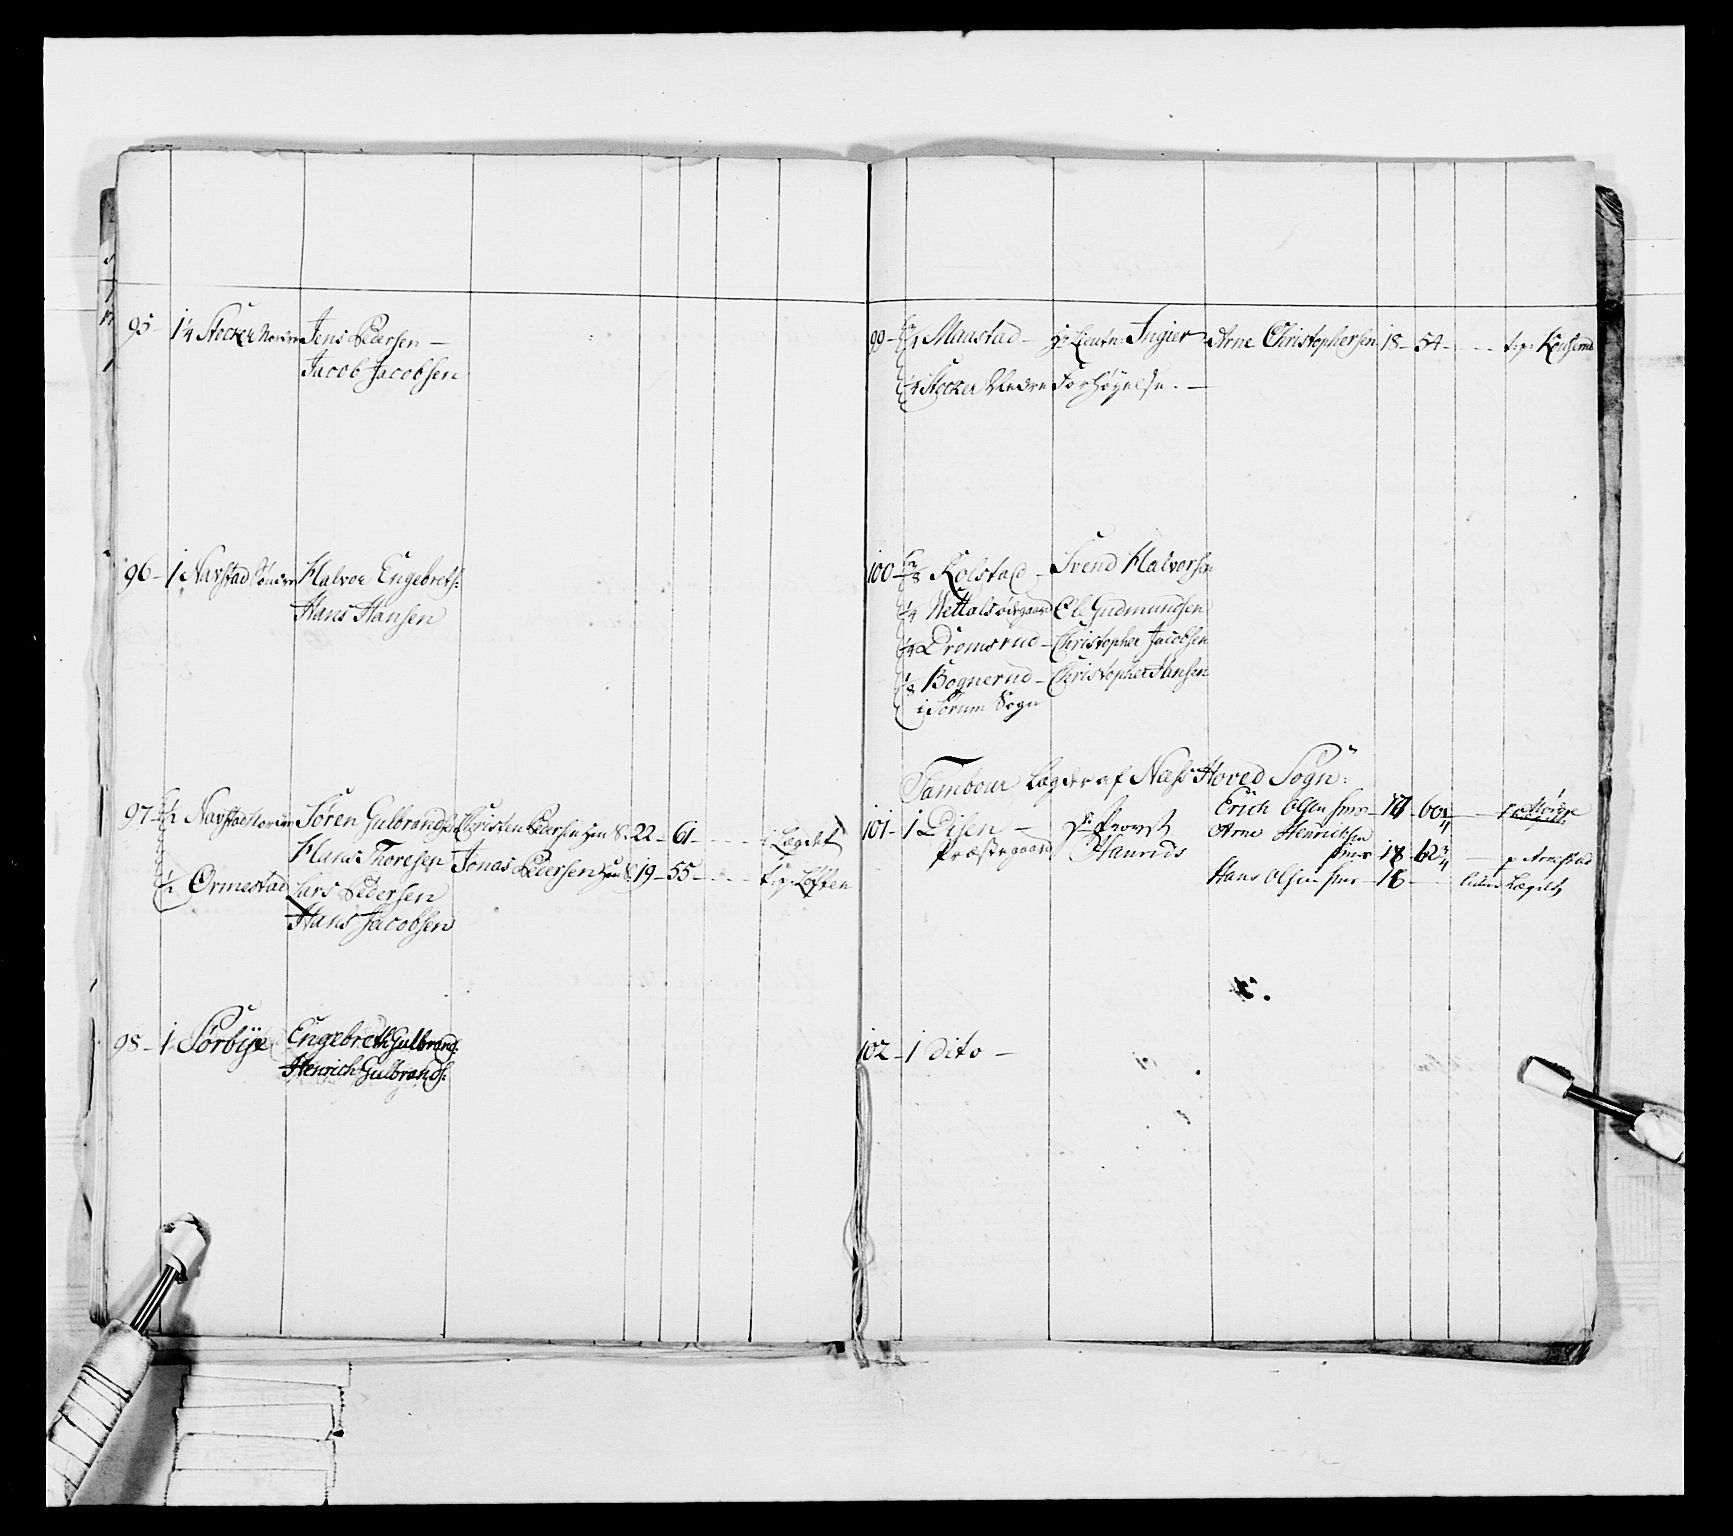 95 - 1 1/4 Stocker Nordre Jens Pedersen -
Jacob Jacobsen
96 - 1 Navstad Søndre Halvor Engebrets:
Hans Hansen
97 - 1/2 Navstad Nordre Søren Gulbrandsen Christen Pedersen 22 - 61 - i Lægdet
Hans Thoresen Jonas Pedersen 19 - 55 - Løften
1/2 Ormestad Lars Pedersen
Hans Jacobsen
98 - 1 Sørbÿe Engebreth Gulbrands:
Henrich Gulbrands:
99 - Maustad - Lieutn: Ingier Arne Christophersen 18 - 54 -
1/4 Stocker Nedre Forhøyelse. -
100 - Kolstad - Svend Halvorsen
1/4 Nettalsødegaard Ole Gudmundsen
1/4 Dromsrud - Christopher Jacobsen
1/8 Bognerud - Christopher Hansen
i Sørum Sogn
Tambour Lægder af Næss Hoved Sogn:
101 - 1 Disen - Hr Provst Erich Olsen
Præstegaard Arne Henrichsen
18 - 62 3/4 - Arnestad
Hans Olsen 18 - Lægdet
102 - 1 dito -